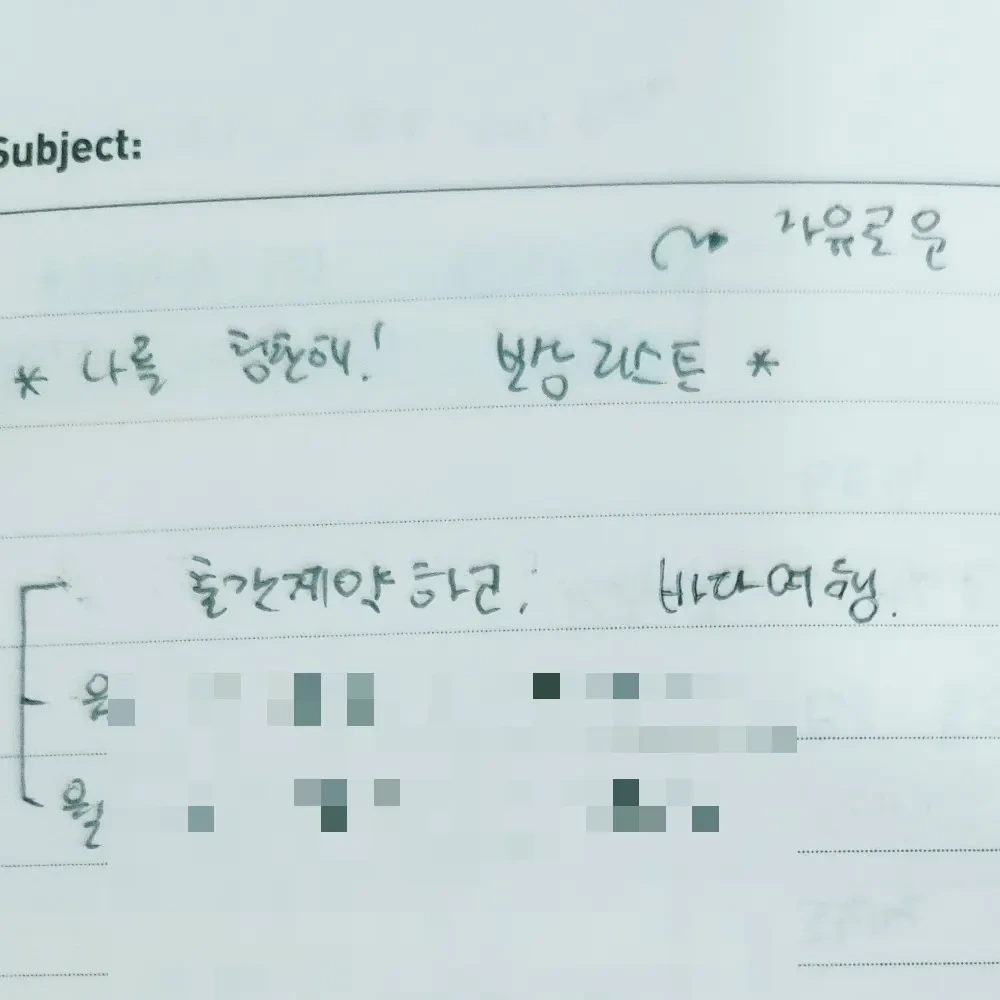 Subject:
자유로운
* 나를 칭찬해! 보상 리스트 *
출간계약 하고, 바다여행.